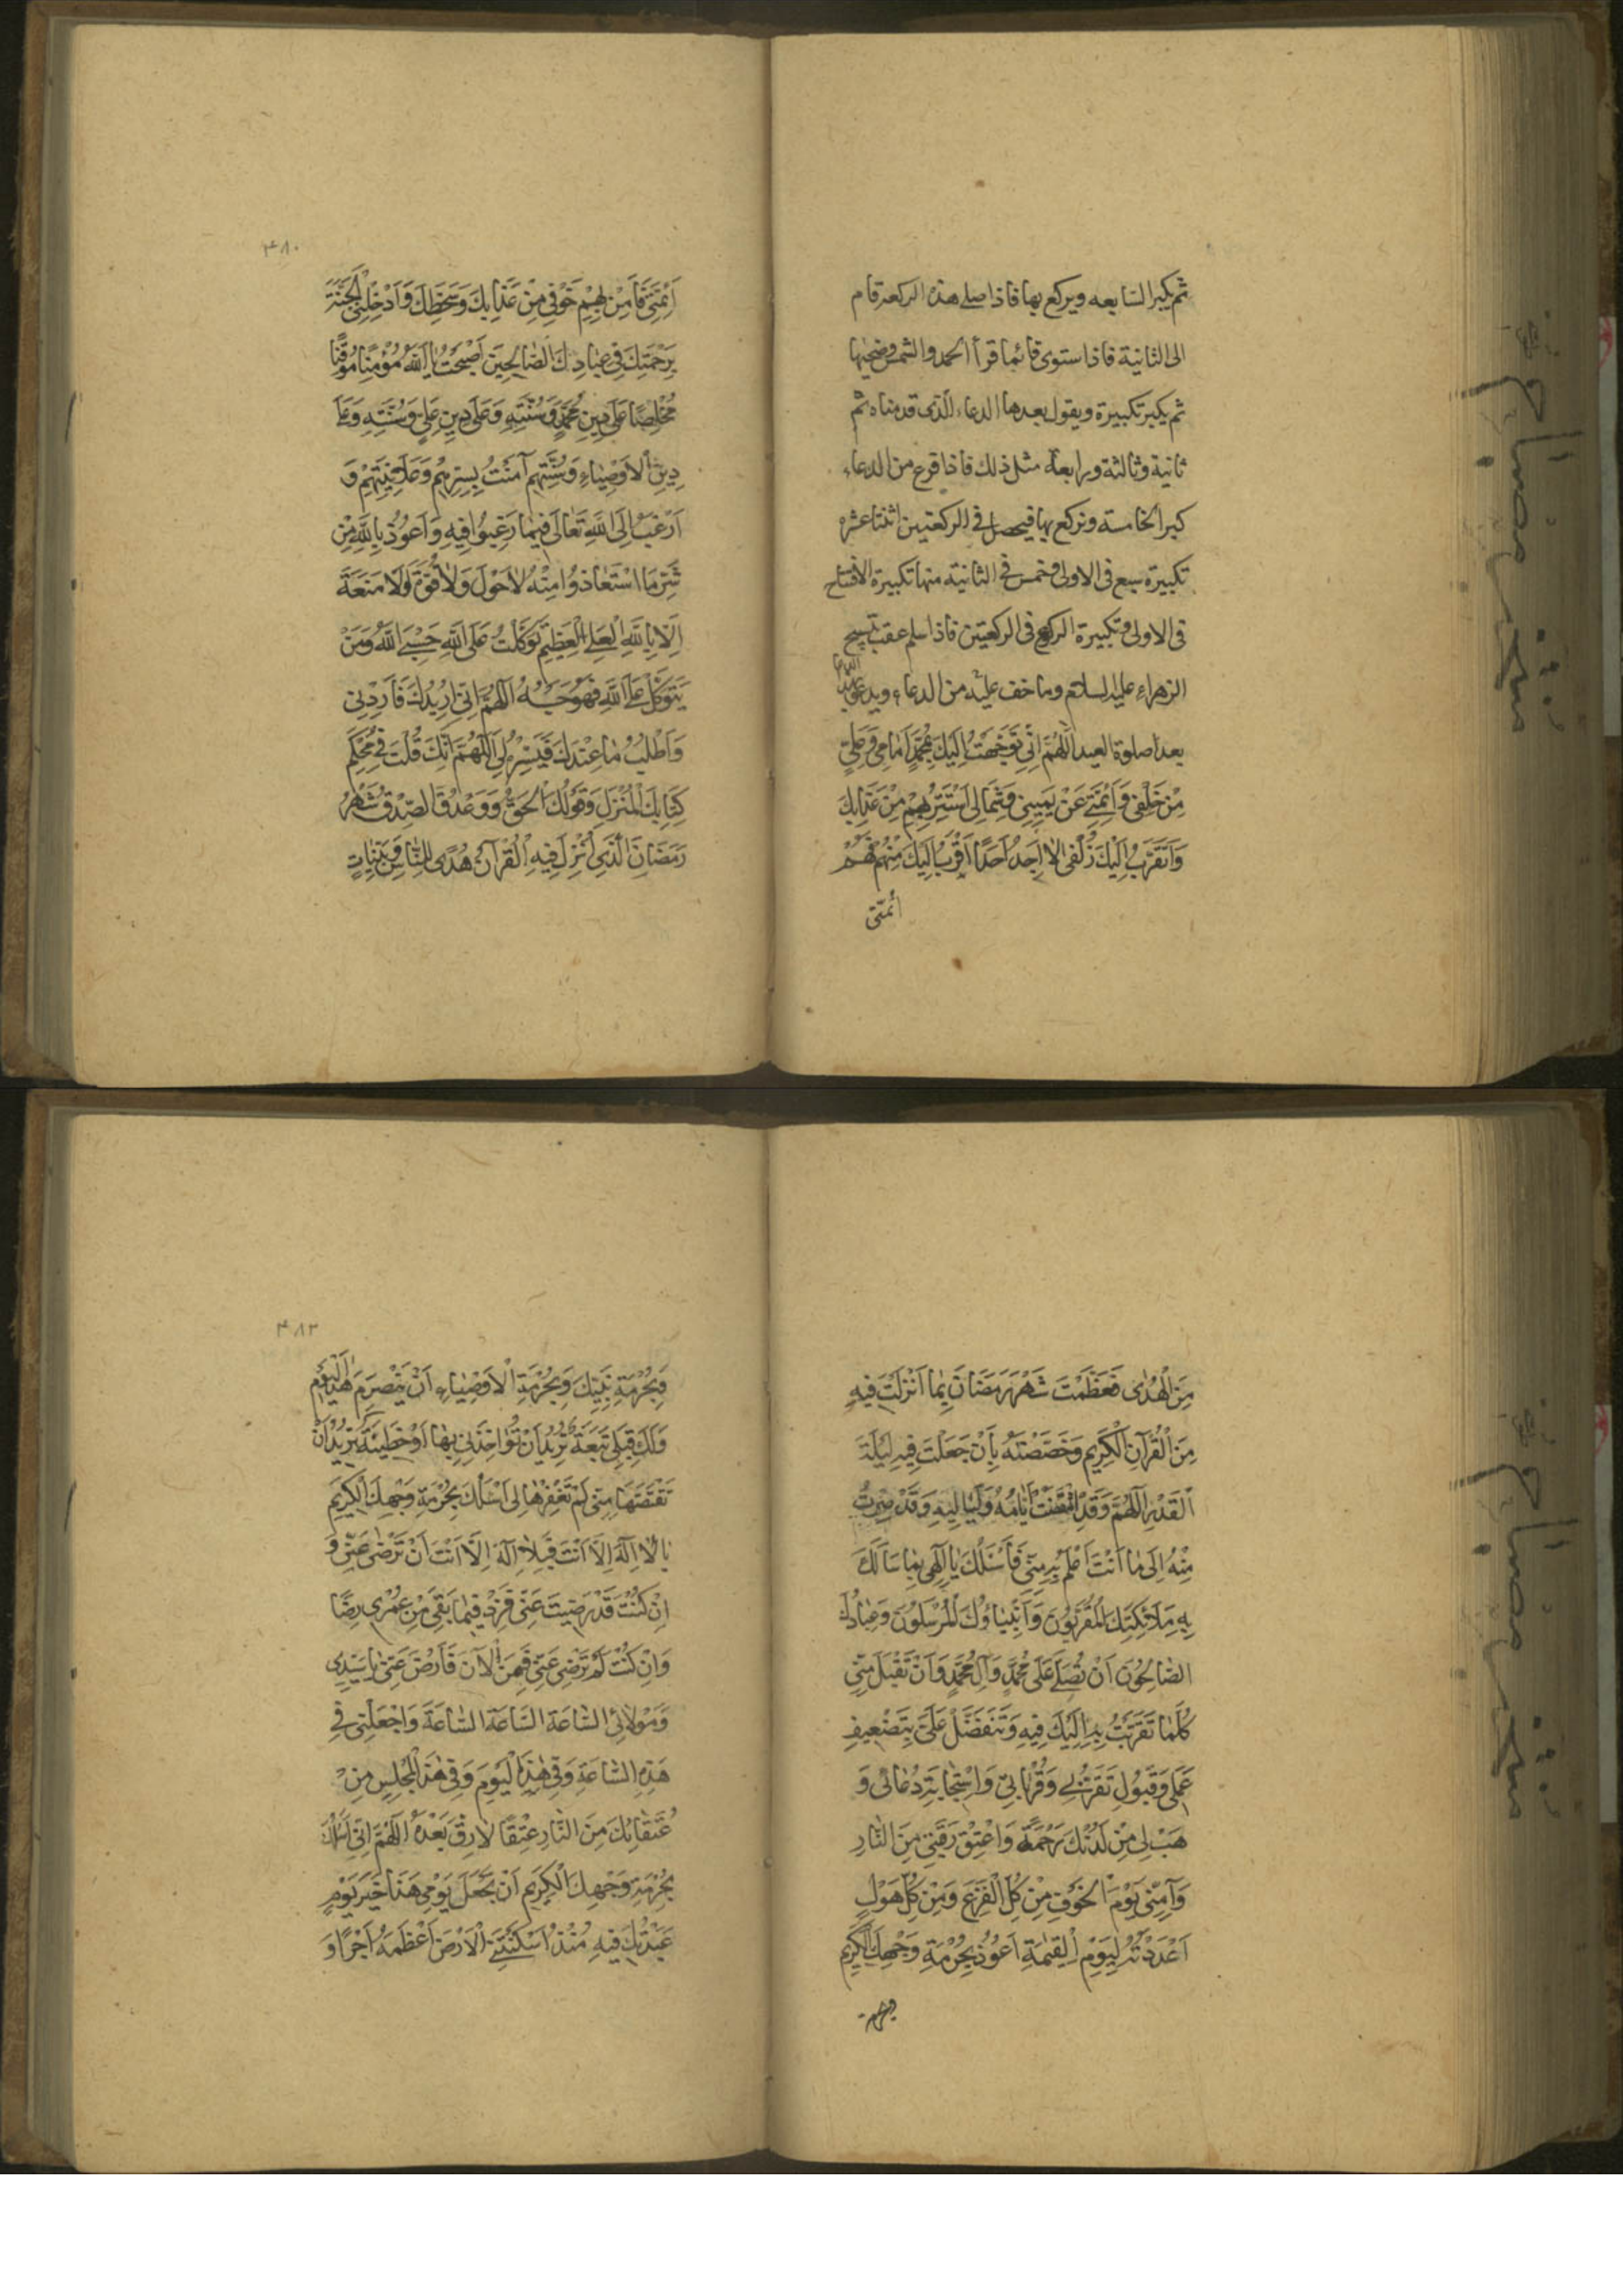 ثم يكبر السابعه ويركع بها فاذا صلى هذه الركعة قام
الى الثانية فاذا استوى قائما قرأ الحمد والشمس وضحيها
ثم يكبر تكبيرة ويقول بعدها الدعاء الذى قدمناه ثم
ثانية وثالثة ورابعة مثل ذلك فاذا فرغ من الدعاء
كبر الخامسة ويركع بها فيحصل فى الركعتين اثنتا عشره
تكبيرة سبع فى الاولى وخمس فى الثانية منها تكبيرة الافتتاح
فى الاولى وتكبيرة الركوع فى الركعتين فاذا سلم عقب تسبيح
الزهراء عليها السلام وما خف عليه من الدعاء ويدعو بهذا الدعاء
بعد صلوة العيد اَللّهُمَّ اِنّى تَوَجَّهْتُ اِلَيْكَ بِمُحَمَّدٍ اَمامى وَعَلِىٍّ
مِنْ خَلْفى وَاَئِمَّتى عَنْ يَمينى وَشِمالى اَسْتَتِرُ بِهِمْ مِنْ عَذابِكَ
وَاَتَقَرَّبُ اِلَيْكَ زُلْفى لا اَجِدُ اَحَدًا اَقْرَبَ اِلَيْكَ مِنْهُمْ فَهُمْ
أئمتى
٤٨٠
اَئِمَّتى فَآمِنْ بِهِمْ خَوْفى مِنْ عَذابِكَ وَسَخَطِكَ وَاَدْخِلْنِى الْجَنَّةَ
بِرَحْمَتِكَ فى عِبادِكَ الصّالِحينَ اَصْبَحْتُ بِاللّهِ مُؤْمِنًا مُوقِنًا
مُخْلِصًا عَلى دينِ مُحَمَّدٍ وَسُنَّتِهِ وَعَلى دينِ عَلِىٍّ وَسُنَّتِهِ وَعَلى
دينِ الْاَوْصِياءِ وَسُنَّتِهِمْ آمَنْتُ بِسِرِّهِمْ وَعَلانِيَتِهِمْ وَ
اَرْغَبُ اِلَى اللّهِ تَعالى فيما رَغِبُوا فيهِ وَاَعُوذُ بِاللّهِ مِنْ
شَرِّ مَا اسْتَعاذُوا مِنْهُ لا حَوْلَ وَلا قُوَّةَ وَلا مَنَعَةَ
اِلّا بِاللّهِ الْعَلِىِّ الْعَظيمِ تَوَكَّلْتُ عَلَى اللّهِ حَسْبِىَ اللّهُ وَمَنْ
يَتَوَكَّلْ عَلَى اللّهِ فَهُوَ حَسْبُهُ اَللّهُمَّ اِنّى اُريدُكَ فَاَرِدْنى
وَاَطْلُبُ ما عِنْدَكَ فَيَسِّرْهُ لى اَللّهُمَّ اِنَّكَ قُلْتَ فى مُحْكَمِ
كِتابِكَ الْمُنْزَلِ وَقَوْلُكَ الْحَقُّ وَوَعْدُكَ الصِّدْقُ شَهْرُ
رَمَضانَ الَّذى اُنْزِلَ فيهِ الْقُرْآنُ هُدًى لِلنّاسِ وَبَيِّناتٍ
مِنَ الْهُدى فَعَظَّمْتَ شَهْرَ رَمَضانَ بِما اَنْزَلْتَ فيهِ
مِنَ الْقُرْآنِ الْكَريمِ وَخَصَصْتَهُ بِاَنْ جَعَلْتَ فيهِ لَيْلَةَ
الْقَدْرِ اَللّهُمَّ وَقَدِ انْقَضَتْ اَيّامُهُ وَلَياليهِ وَقَدْ صِرْتُ
مِنْهُ اِلى ما اَنْتَ اَعْلَمُ بِهِ مِنّى فَاَسْئَلُكَ يا اِلهى بِما سَاَلَكَ
بِهِ مَلائِكَتُكَ الْمُقَرَّبُونَ وَاَنْبِياؤُكَ الْمُرْسَلُونَ وَعِبادُكَ
الصّالِحُونَ اَنْ تُصَلِّىَ عَلى مُحَمَّدٍ وَآلِ مُحَمَّدٍ وَاَنْ تَقْبَلَ مِنّى
كُلَّما تَقَرَّبْتُ بِهِ اِلَيْكَ فيهِ وَتَتَفَضَّلَ عَلَىَّ بِتَضْعيفِ
عَمَلى وَقَبُولِ تَقَرُّبى وَقُرُباتى وَاسْتِجابَةِ دُعائى وَ
هَبْ لى مِنْ لَدُنْكَ رَحْمَةً وَاَعْتِقْ رَقَبَتى مِنَ النّارِ
وَآمِنّى يَوْمَ الْخَوْفِ مِنْ كُلِّ الْفَزَعِ وَمِنْ كُلِّ هَوْلٍ
اَعْدَدْتَهُ لِيَوْمِ الْقِيمَةِ اَعُوذُ بِحُرْمَةِ وَجْهِكَ الْكَريمِ
وبحرمة
٤٨٢
وَبِحُرْمَةِ نَبِيِّكَ وَبِحُرْمَةِ الْاَوْصِياءِ اَنْ يَنْصَرِمَ هذَا الْيَوْمُ
وَلَكَ قِبَلى تَبِعَةٌ تُريدُ اَنْ تُؤاخِذَنى بِها اَوْ خَطيئَةٌ تُريدُ اَنْ
تَقْتَصَّها مِنّى لَمْ تَغْفِرْها لى اَسْئَلُكَ بِحُرْمَةِ وَجْهِكَ الْكَريمِ
يا لا اِلهَ اِلّا اَنْتَ بِلا اِلهَ اِلّا اَنْتَ اَنْ تَرْضى عَنّى وَ
اِنْ كُنْتَ قَدْ رَضيتَ عَنّى فَزِدْ فيما بَقِىَ مِنْ عُمْرى رِضًا
وَاِنْ كُنْتَ لَمْ تَرْضَ عَنّى فَمِنَ الْآنَ فَارْضَ عَنّى يا سَيِّدى
وَمَوْلائى السّاعَةَ السّاعَةَ السّاعَةَ وَاجْعَلْنى فى
هذِهِ السّاعَةِ وَفى هذَا الْيَوْمِ وَفى هذَا الْمَجْلِسِ مِنْ
عُتَقائِكَ مِنَ النّارِ عِتْقًا لا رِقَّ بَعْدَهُ اَللّهُمَّ اِنّى اَسْئَلُكَ
بِحُرْمَةِ وَجْهِكَ الْكَريمِ اَنْ تَجْعَلَ يَوْمى هذا خَيْرَ يَوْمٍ
عَبَدْتُكَ فيهِ مُنْذُ اَسْكَنْتَنِى الْاَرْضَ اَعْظَمَهُ اَجْرًا وَ